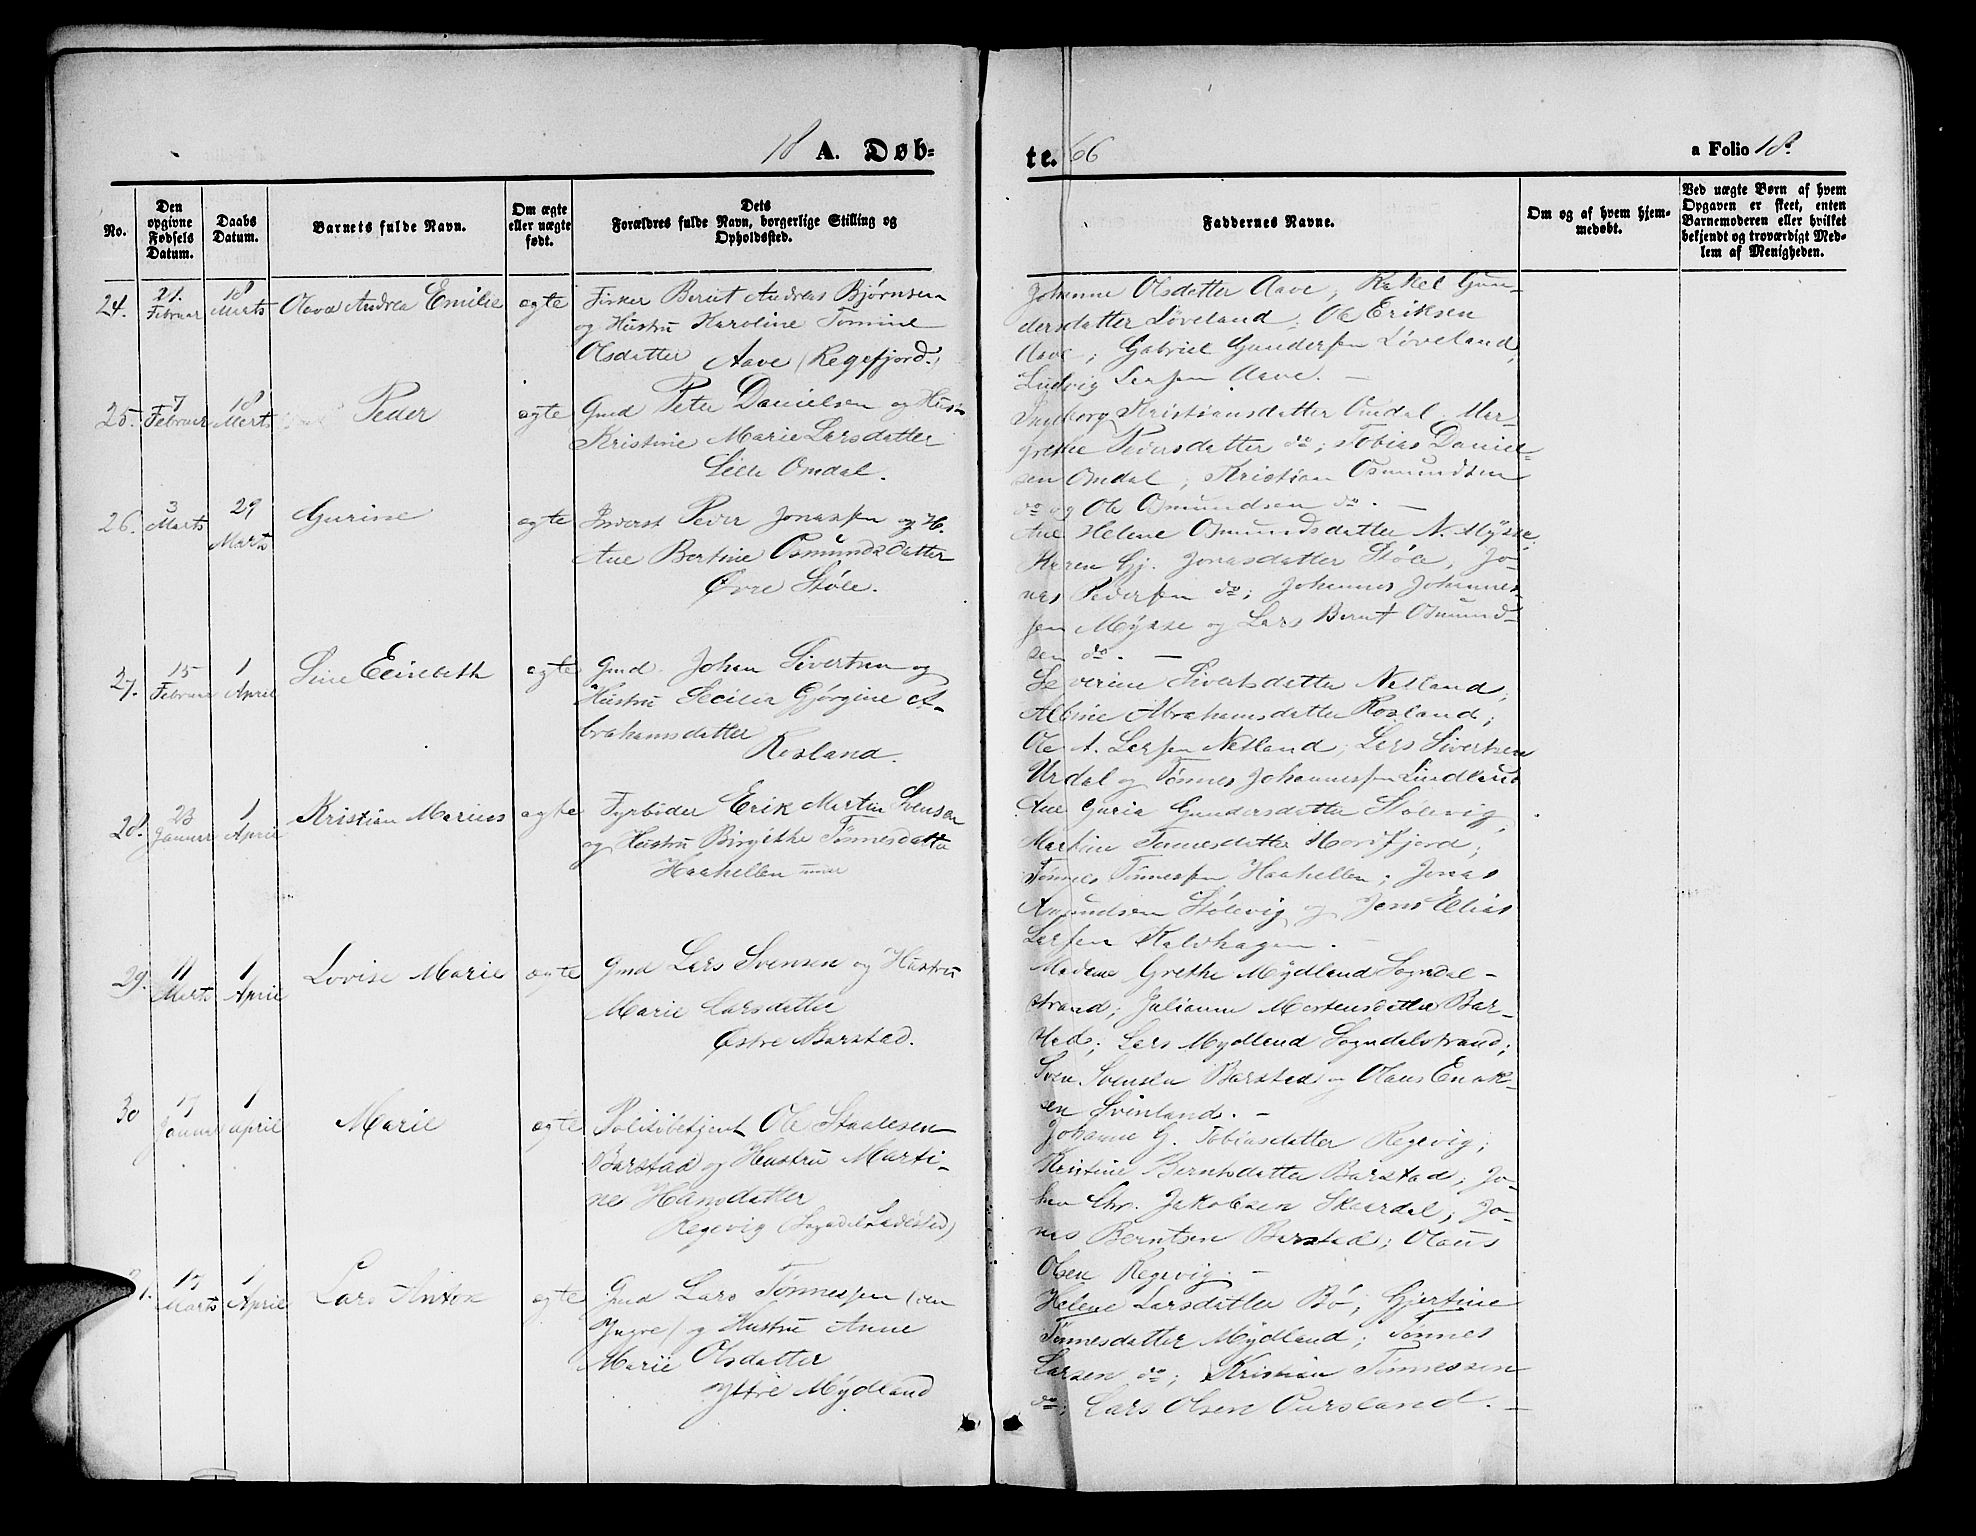 18 A. Døb-
No.
Den opgivne Fødsels Datum.
Daabs Datum.
Barnets fulde Navn.
Om ægte eller uægte født.
Dets Forældres fulde Navn, borgerlige Stilling og Opholdssted.
24.
21. Februar
18 Marts
Olava Andrea Emilie
ægte
Fisker Bernt Andreas Bjørnsen
og Hustru Karoline Tomine
Olsdatter Aave (Regefjord.)
25.
7 Februar
18 Marts
Peder
ægte
Gmd Peter Danielsen og Hustru
Kristine Marie Larsdatter
Lille Omdal.
26.
3 Marts
29 Marts
Gurine
ægte
Inderst Peder Jonassen og H.
Ane Bertine Osmundsdatter
Øvre Støle.
27.
15 Februar
1 April
Sine Elisabeth
ægte
Gmd. Johan Sivertsen og
Hustru Secilia Gjørgine A-
brahamsdatter
Rosland.
28.
23 Januar
1 April
Kristian Marius
ægte
Fyrbøder Erik Martin Svensen
og Hustru Birgithe Tønnesdatter
Haahellen
29.
11 Marts
1 April
Lovise Marie
ægte
Gmd Lars Svensen og Hustru
Marie Larsdatter
Østre Barstad.
30
17 Januar
1 April
Marie
ægte
Politibetjent Ole Staalesen
Barstad og Hustru Marti-
ne Hansdatter
Regevig (Sogndal Ladested)
31.
17 Marts
1 April
Lars Anton
ægte
Gmd Lars Tønnessen (den
Yngre) og Hustru Anne
Marie Olsdatter
Ytre Mydland
te. 66
a Folio 18.
Faddernes Navne.
Om og af hvem hjem-
medøbt.
Ved uægte Børn af hvem
Opgaven er skeet, enten
Barnemoderen eller hvilket
bekjendt og troværdigt Med-
lem af Menigheden.
Johanne Olsdatter Aave; Rakel Gun-
dersdatter Løveland; Ole Eriksen
Aave; Gabriel Gundersen Løveland,
Ludvig Larsen Aave. —
Ingeborg Kristiansdatter Omdal, Mar-
grethe Pedersdatter do; Tobias Daniel-
sen Omdal; Kristian Osmundsen
do og Ole Osmundsen do. —
Ane Helene Osmundsdatter N. Mysse,
Karen Gj. Jonasdatter Støle, Jo-
nas Pedersen do; Johannes Johannes-
sen Mysse og Lars Bernt Osmund-
sen do. —
Severine Sivertsdatter Netland,
Albine Abrahamsdatter Rosland;
Ole A. Larsen Netland; Lars Sivertsen
Urdal og Tønnes Johannessen Lindland
Ane Guria Gundersdatter Stølevig,
Martine Tønnesdatter
Tønnes Tønnessen Haahellen; Jonas
Amundsen Stølevig og Jens Elias
Larsen Kalvhagen. —
Madame Grethe Mydland Sogndal-
strand; Julianne Mortensdatter Bar-
stad; Lars Mydland Sogndalstrand;
Sven Svensen Barstad og Olaus Enok-
sen Svinland. —
Johanne G. Tobiasdatter Regevig;
Kristine Berntsdatter Barstad, Jo-
han Chr. Jakobsen Skaardal; Jo-
nas Berntsen Barstad; Olaus
Olsen Regevig. —
Helene Larsdatter Bø; Gjertine
Tønnesdatter Mydland; Tønnes
Larsen do; Kristian Tønnessen
do; Lars Olsen Oursland. —